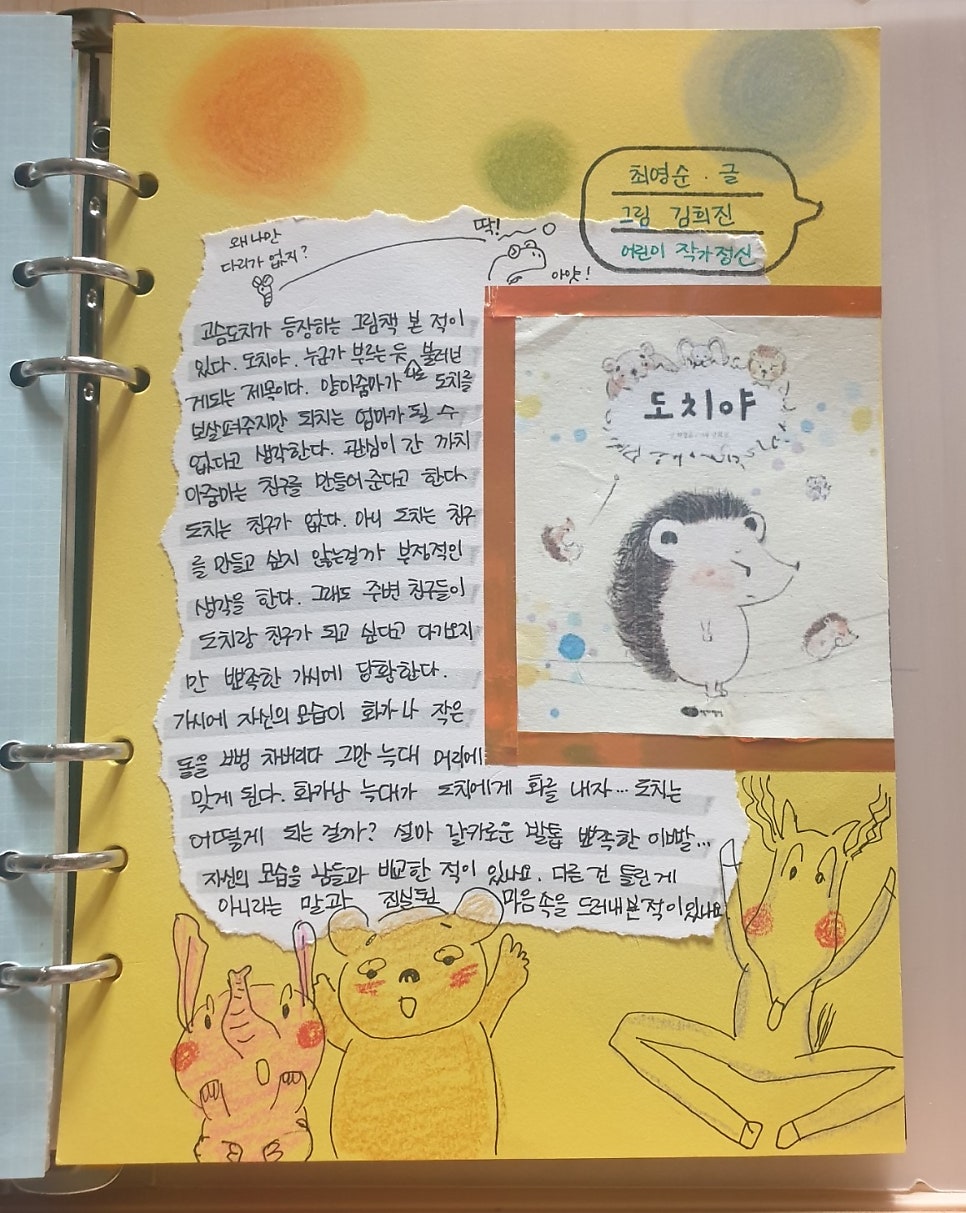 최영순 · 글
그림 김희진
어린이 작가정신
왜 나만
다리가 없지?
딱!
아얏!
고슴도치가 등장하는 그림책 본 적이
있다. 도치야. 누군가 부르는 듯 불러보
게되는 제목이다. 양아줌마가 도치를
보살펴주지만 도치는 엄마가 될 수
없다고 생각한다. 관심이 간 까치
아줌마는 친구를 만들어준다고 한다.
도치는 친구가 없다. 아니 도치는 친구
를 만들고 싶지 않는걸까 부정적인
생각을 한다. 그래도 주변 친구들이
도치랑 친구가 되고 싶다고 다가오지
만 뾰족한 가시에 당황한다.
가시에 자신의 모습이 화가나 작은
돌을 뻥 차버리다 그만 늑대 머리에
맞게 된다. 화가난 늑대가 도치에게 화를 내자... 도치는
어떻게 되는걸까? 설마 날카로운 발톱 뾰족한 이빨...
자신의 모습을 남들과 비교한 적이 있나요. 다른 건 틀린게
아니라는 말과 진실된 마음속을 드러내본적이있나요
도치야